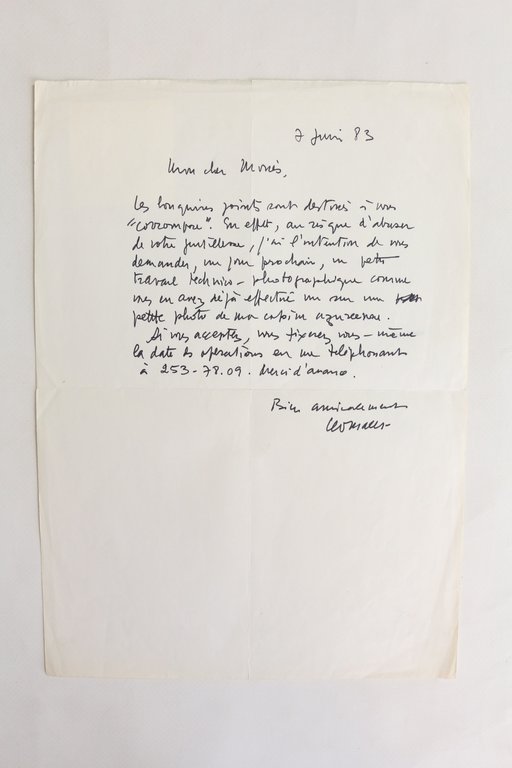 7 Juin 83
Mon cher Monès,
Les bouquins joints sont destinés à vous
"corrompre". En effet, au risque d'abuser
de votre gentillesse, j'ai l'intention de vous
demander, un jour prochain, un petit
travail technico-photographique comme
vous en avez déjà effectué un sur une
petite photo de mon copain
Si vous acceptez, vous fixerez vous-même
la date des opérations en me téléphonant
à 253-78.09. Merci d'avance.
Bien amicalement